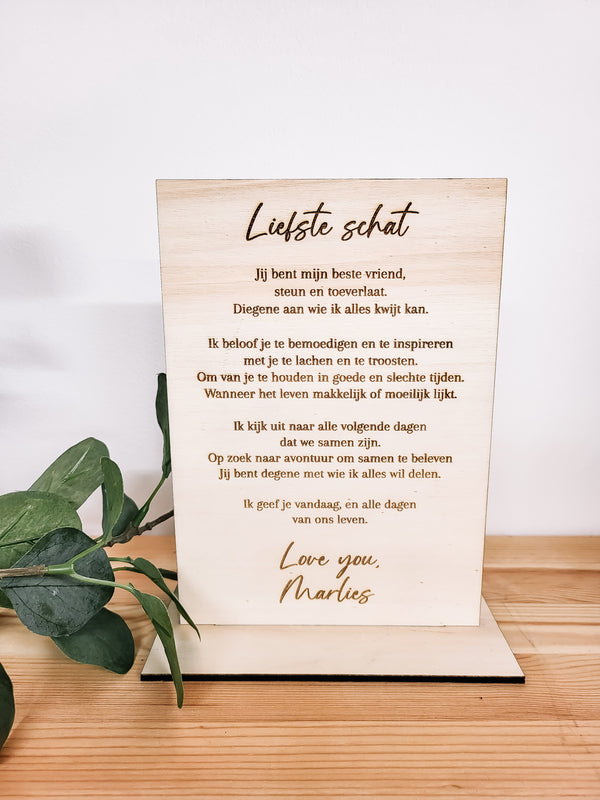 Liefste schat
Jij bent mijn beste vriend,
steun en toeverlaat.
Diegene aan wie ik alles kwijt kan.
Ik beloof je te bemoedigen en te inspireren
met je te lachen en te troosten.
Om van je te houden in goede en slechte tijden.
Wanneer het leven makkelijk of moeilijk lijkt.
Ik kijk uit naar alle volgende dagen
dat we samen zijn.
Op zoek naar avontuur om samen te beleven
Jij bent degene met wie ik alles wil delen.
Ik geef je vandaag, en alle dagen
van ons leven.
Love you,
Marlies